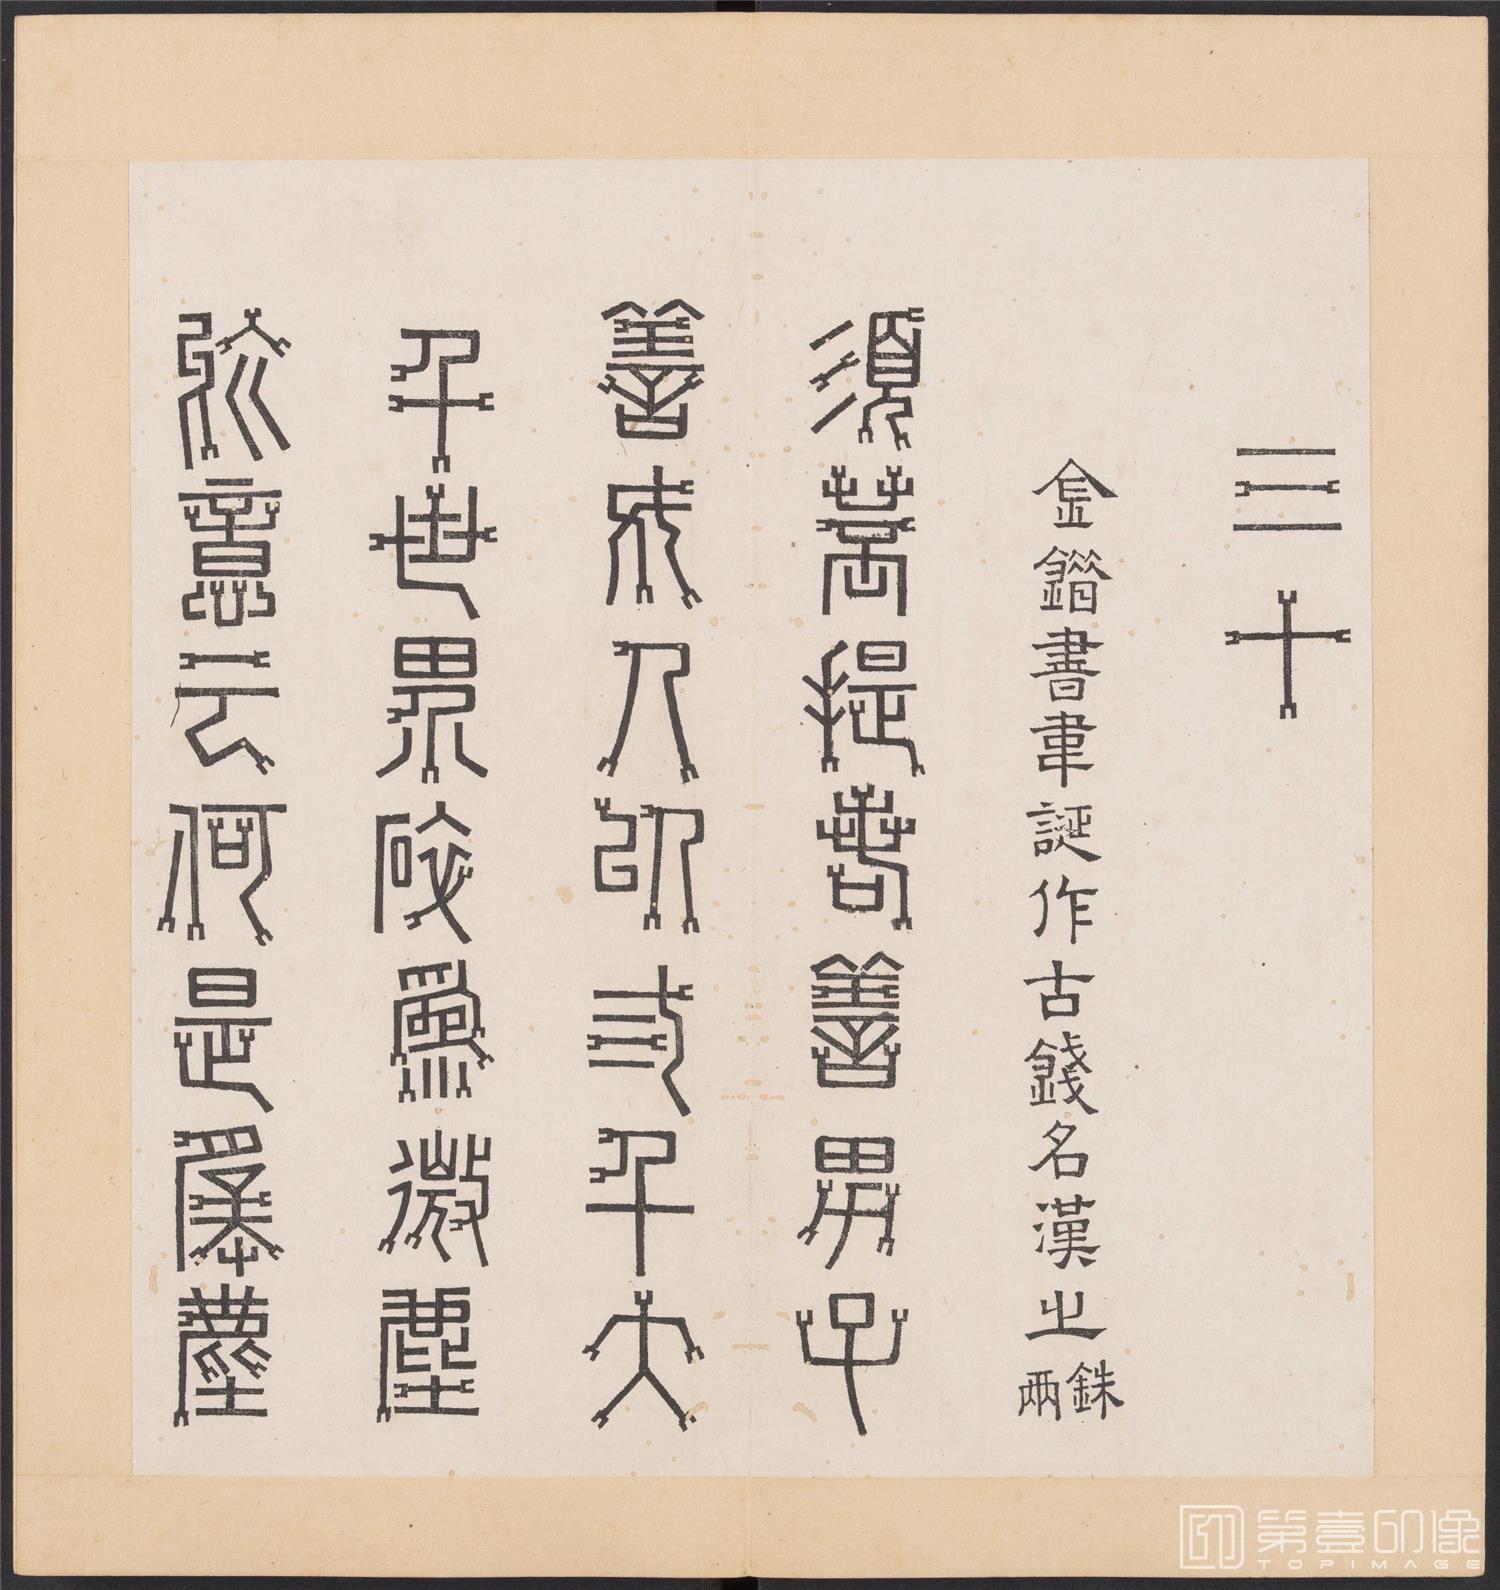 三十
金錯書韋誕作古錢名漢之銖兩
須菩提若善男子
善女人以三千大
千世界碎為微塵
於意云何是微塵
第壹印像
TOPIMAGE